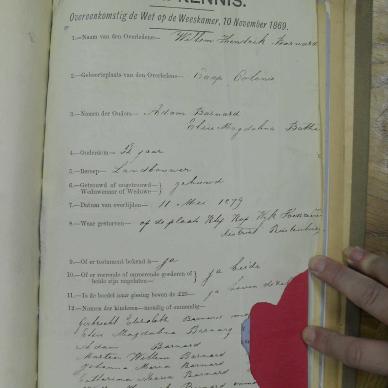 KENNIS.
Overeenkomstig de Wet op de Weeskamer, 10 November 1869.
1.—Naam van den Overledene— Willem Hendrik Barnard
2.—Geboorteplaats van den Overledene— Kaap Colonie
3.—Namen der Ouders— Adam Barnard
Elsie Magdalina Botha
4.—Ouderdom— jaar
5.—Beroep— Landbouwer
6.—Getrouwd of ongetrouwd— Weduwenaar of Weduwe— gehuwd
7.—Datum van overlijden— 11 Mei 1879
8.—Waar gestorven— op de plaats Wyk
District Rustenburg
9.—Of er testament bekend is— ja
10.—Of er roerende of onroerende goederen of beide zijn nagelaten— ja beide
11.—Is de boedel naar gissing boven de ja boven de
12.—Namen der kinderen—mondig of onmondig—
Elizabeth Barnard
Elsie Magdalina Barnard
Adam Barnard
Martin Willem Barnard
Johanna Maria Barnard
Catharina Maria Barnard
Barnard